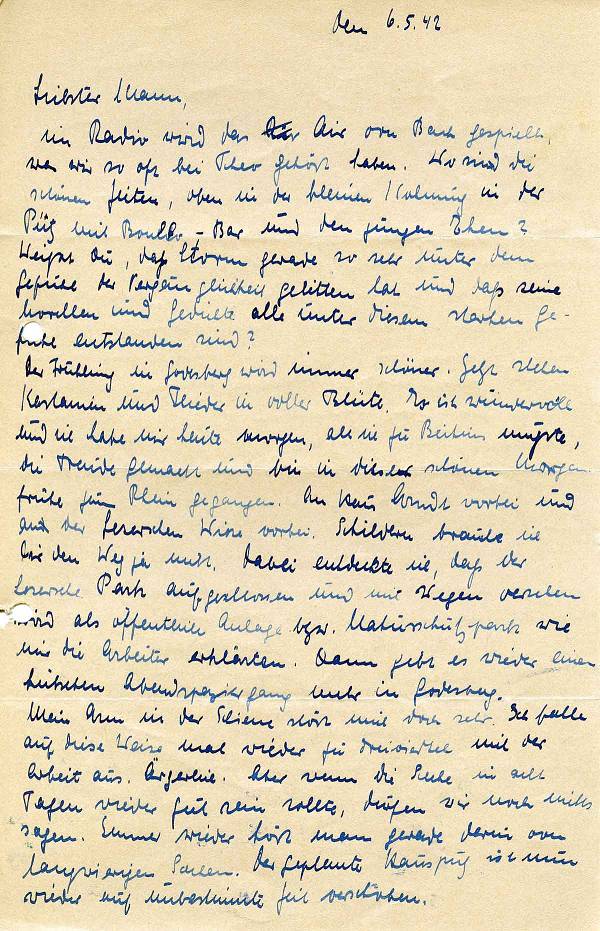 den 6.5.42
Liebster Mann,
im Radio wird das Air von Bach gespielt,
was wir so oft bei Theo gehört haben. Wo sind die
schönen Zeiten, oben in der kleinen Wohnung in der
mit - Bar und den jungen Ehen?
Weißt Du, daß Storm gerade so sehr unter dem
Gefühl der Vergänglichkeit gelitten hat und daß seine
Novellen und Gedichte alle unter diesem starken Ge-
fühle entstanden sind?
Der Frühling in Godesberg wird immer schöner. Jetzt stehen
Kastanien und Flieder in voller Blüte. Es ist wundervoll
und ich habe mir heute morgen, als ich zu mußte,
die Freude gemacht und bin in dieser schönen Morgen-
frühe zum Rhein gegangen. An Haus vorbei und
an der Wiese vorbei. Schildern brauche ich
Dir den Weg ja nicht. Dabei entdeckte ich, daß der
Park aufgeschlossen und mit Wegen versehen
wird als öffentliche Anlage bzw. Naturschutzpark wie
mir die Arbeiter erklärten. Dann gibt es wieder einen
hübschen Abendspaziergang mehr in Godesberg.
Mein Arm in der Schiene stört mich doch sehr. Ich falle
auf diese Weise mal wieder zu dreiviertel mit der
Arbeit aus. Ärgerlich. Aber wenn die Sache in acht
Tagen wieder gut sein sollte, dürfen wir noch nichts
sagen. Immer wieder hört man gerade darin von
langwierigen Sachen. Der geplante Hausputz ist nun
wieder auf unbestimmte Zeit verschoben.